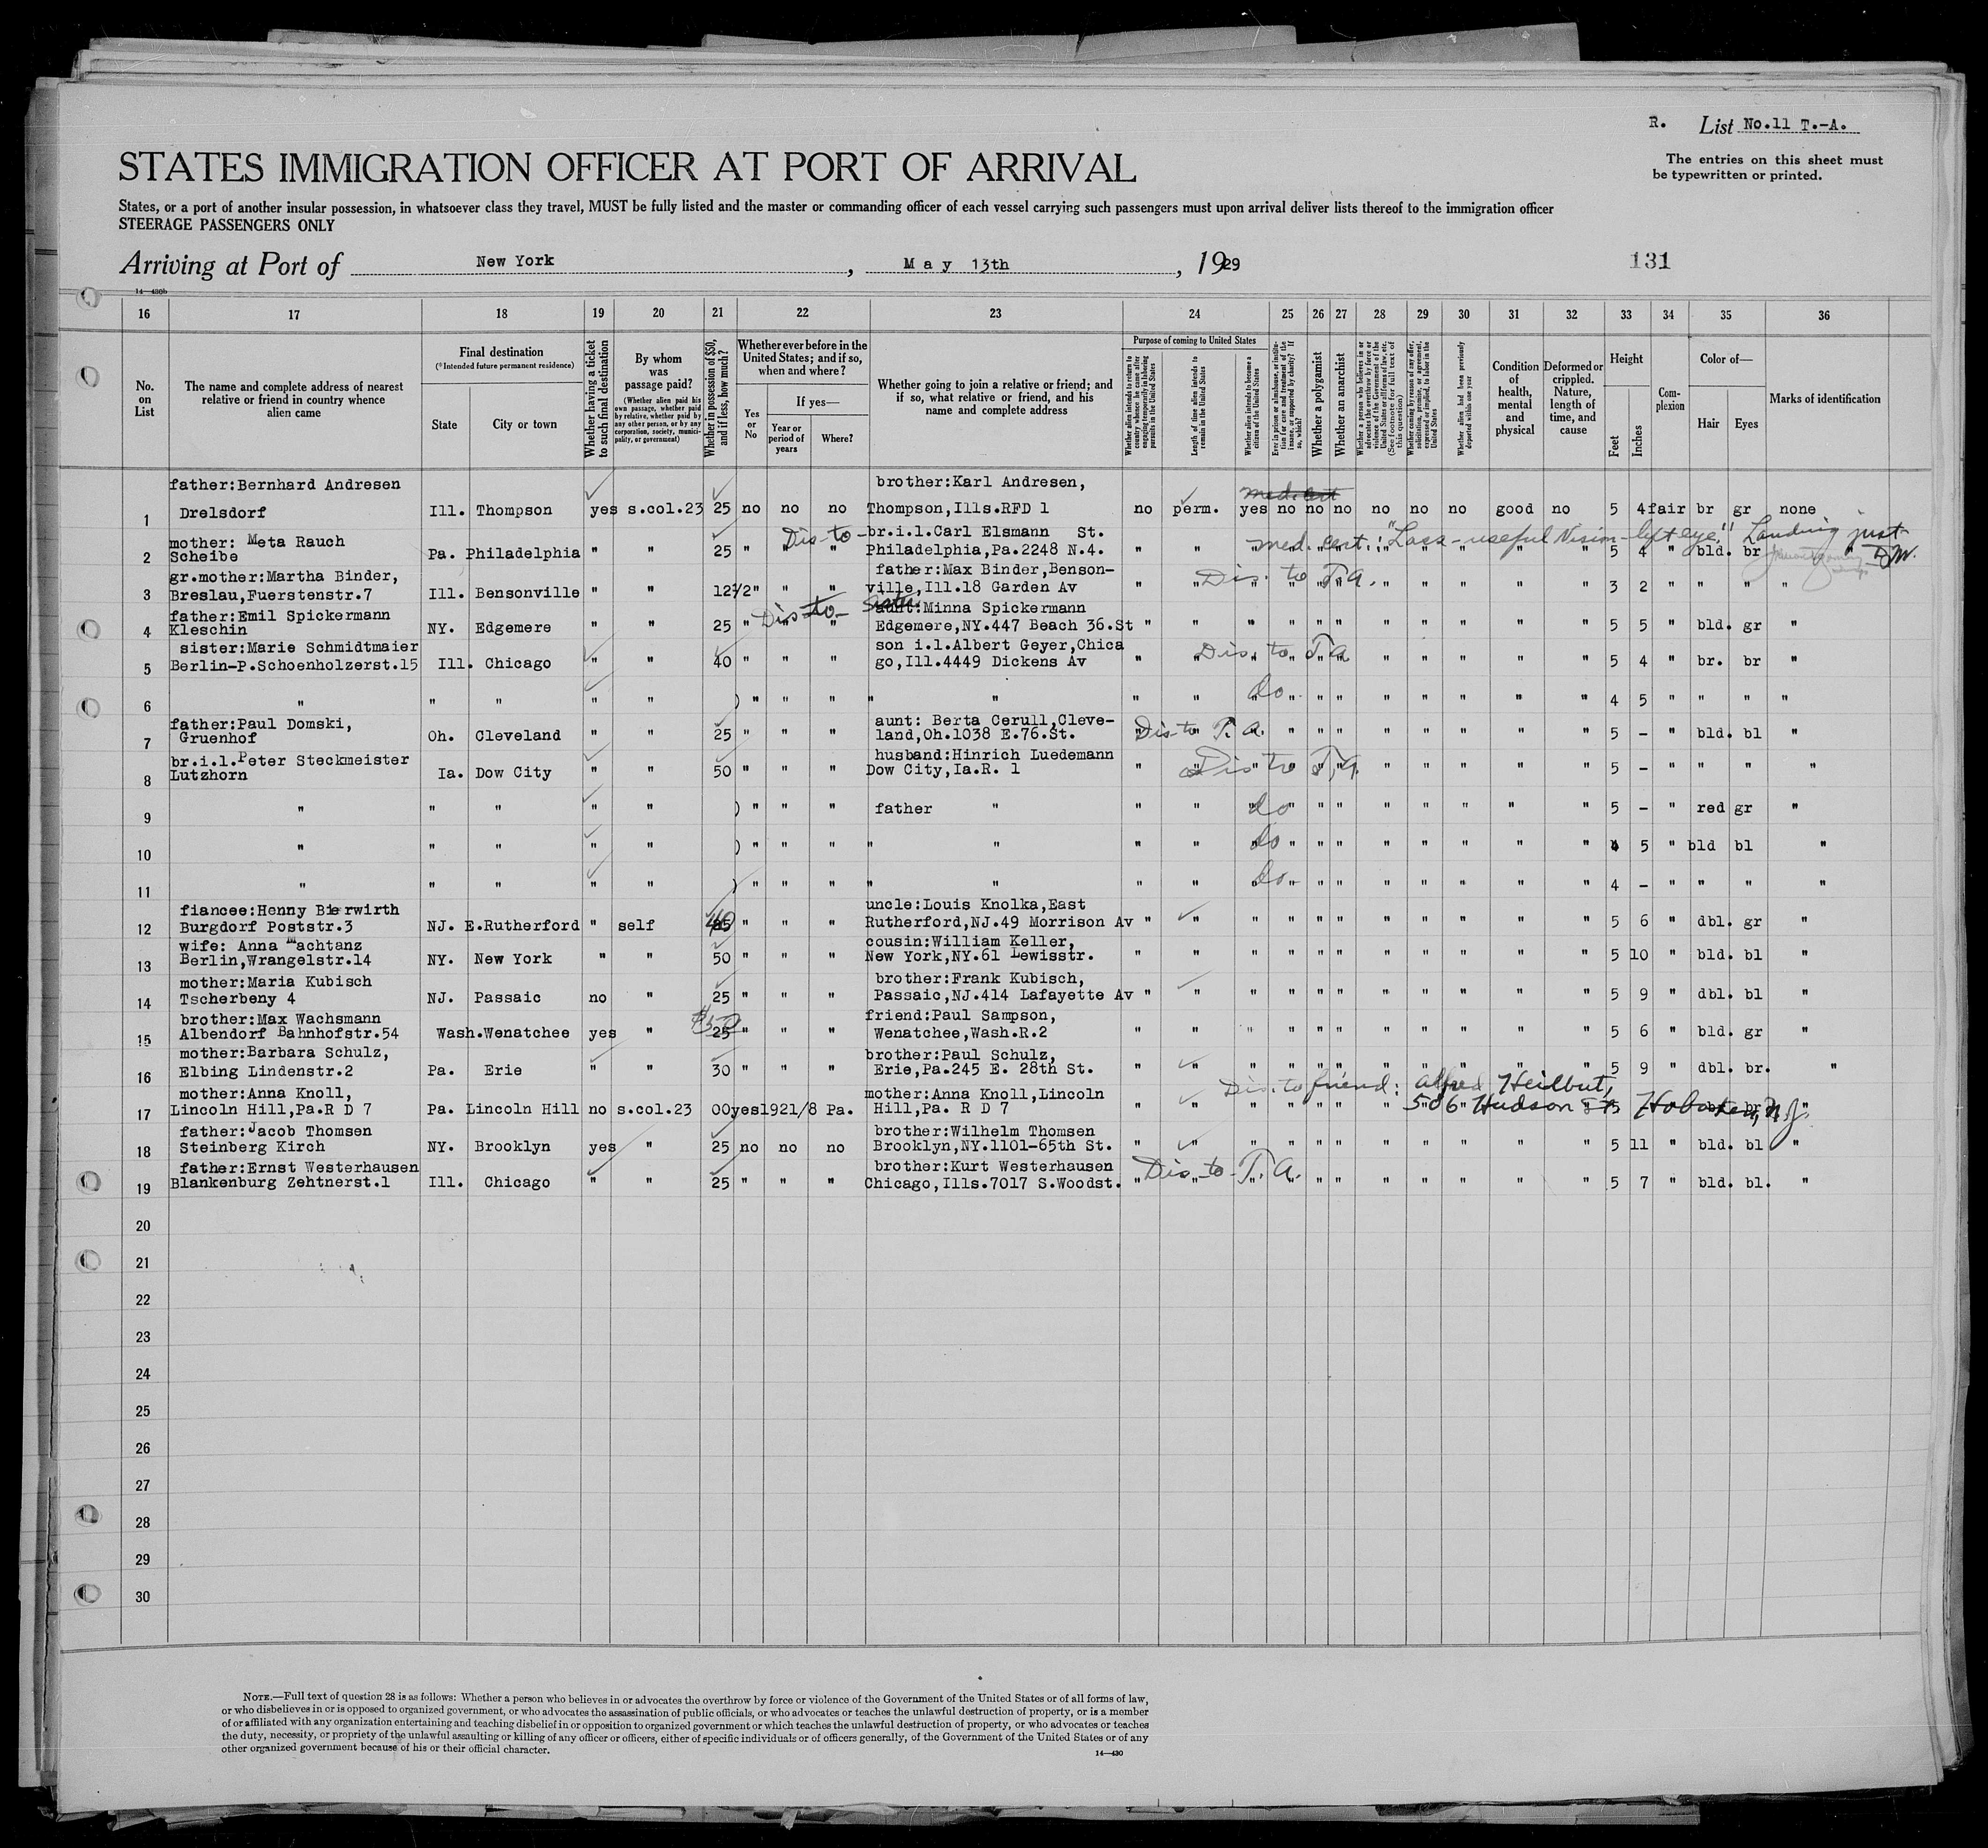 R. List No.11 T.-A.
STATES IMMIGRATION OFFICER AT PORT OF ARRIVAL
The entries on this sheet must
be typewritten or printed.
States, or a port of another insular possession, in whatsoever class they travel, MUST be fully listed and the master or commanding officer of each vessel carrying such passengers must upon arrival deliver lists thereof to the immigration officer
STEERAGE PASSENGERS ONLY
Arriving at Port of New York, May 13th, 1929
131
14—430b
16 17 18 19 20 21 22 23 24 25 26 27 28 29 30 31 32 33 34 35 36
No. on List
The name and complete address of nearest relative or friend in country whence alien came
Final destination
(*Intended future permanent residence)
State
City or town
Whether having a ticket to such final destination
By whom was passage paid?
(Whether alien paid his own passage, whether paid by relative, whether paid by any other person, or by any corporation, society, municipality, or government)
Whether in possession of $50, and if less, how much?
Whether ever before in the United States; and if so, when and where?
Yes or No
If yes—
Year or period of years
Where?
Whether going to join a relative or friend; and if so, what relative or friend, and his name and complete address
Purpose of coming to United States
Whether alien intends to return to country whence he came after engaging temporarily in laboring pursuits in the United States
Length of time alien intends to remain in the United States
Whether alien intends to become a citizen of the United States
Ever in prison or almshouse, or institution for care and treatment of the insane, or supported by charity? If so, which?
Whether a polygamist
Whether an anarchist
Whether a person who believes in or advocates the overthrow by force or violence of the Government of the United States or all forms of law, etc. (See footnote for full text of this question)
Whether coming by reason of any offer, solicitation, promise, or agreement, expressed or implied, to labor in the United States
Whether alien had been previously deported within one year
Condition of health, mental and physical
Deformed or crippled. Nature, length of time, and cause
Height
Feet
Inches
Complexion
Color of—
Hair
Eyes
Marks of identification
father:Bernhard Andresen brother:Karl Andresen, med. cert
1 Drelsdorf Ill. Thompson yes s.col.23 25 no no no Thompson,Ills.RFD 1 no perm. yes no no no no no no good no 5 4 fair br gr none
mother: Meta Rauch Dis-to- br.i.l.Carl Elsmann St. med. cert.: "Loss-useful Vision-left eye" Landing just
2 Scheibe Pa. Philadelphia " " 25 " " " Philadelphia,Pa.2248 N.4. " " " " " " " " " " " 5 4 " bld. br "
gr.mother:Martha Binder, father:Max Binder,Benson-
3 Breslau,Fuerstenstr.7 Ill. Bensonville " " 12½ " " " ville,Ill.18 Garden Av Dis. to T.A. " " " " " " " " " " " 3 2 " " " "
father:Emil Spickermann Dis to- sister aunt:Minna Spickermann
4 Kleschin NY. Edgemere " " 25 " " " Edgemere,NY.447 Beach 36.St " " " " " " " " " " " 5 5 " bld. gr "
sister:Marie Schmidtmaier son i.l.Albert Geyer,Chica
5 Berlin-P.Schoenholzerst.15 Ill. Chicago " " 40 " " " go,Ill.4449 Dickens Av Dis. to T.A. " " " " " " " " " " " 5 4 " br. br "
6 " " " " " ) " " " " " " " do " " " " " " " " 4 5 " " " "
father:Paul Domski, aunt: Berta Cerull,Cleve-
7 Gruenhof Oh. Cleveland " " 25 " " " land,Oh.1038 E.76.St. Dis-to T.A. " " " " " " " " " " " 5 - " bld. bl "
br.i.l.Peter Steckmeister husband:Hinrich Luedemann
8 Lutzhorn Ia. Dow City " " 50 " " " Dow City,Ia.R. 1 Dis to T.A. " " " " " " " " " " " 5 - " " " "
9 " " " " " ) " " " father " " " do " " " " " " " " 5 - " red gr "
10 " " " " " ) " " " " " " " do " " " " " " " " 4 5 " bld bl "
11 " " " " " ) " " " " " " " do " " " " " " " " 4 - " " " "
fiancee:Henny Bierwirth uncle:Louis Knolka,East
12 Burgdorf Poststr.3 NJ. E.Rutherford " self 40 " " " Rutherford,NJ.49 Morrison Av " " " " " " " " " " " 5 6 " dbl. gr "
wife: Anna Machtanz cousin:William Keller,
13 Berlin,Wrangelstr.14 NY. New York " " 50 " " " New York,NY.61 Lewisstr. " " " " " " " " " " " 5 10 " bld. bl "
mother:Maria Kubisch brother:Frank Kubisch,
14 Tscherbeny 4 NJ. Passaic no " 25 " " " Passaic,NJ.414 Lafayette Av " " " " " " " " " " " 5 9 " dbl. bl "
brother:Max Wachsmann $50 friend:Paul Sampson,
15 Albendorf Bahnhofstr.54 Wash.Wenatchee yes " 25 " " " Wenatchee,Wash.R.2 " " " " " " " " " " " 5 6 " bld. gr "
mother:Barbara Schulz, brother:Paul Schulz,
16 Elbing Lindenstr.2 Pa. Erie " " 30 " " " Erie,Pa.245 E. 28th St. " " " " " " " " " " " 5 9 " dbl. br. "
mother:Anna Knoll, mother:Anna Knoll,Lincoln Dis. to friend: Alfred Heilbut,
17 Lincoln Hill,Pa.R D 7 Pa. Lincoln Hill no s.col.23 00 yes 1921/8 Pa. Hill,Pa. R D 7 " " " " " " " 506 Hudson St Hoboken, N.J.
father:Jacob Thomsen brother:Wilhelm Thomsen
18 Steinberg Kirch NY. Brooklyn yes " 25 no no no Brooklyn,NY.1101-65th St. " " " " " " " " " " " 5 11 " bld. bl "
father:Ernst Westerhausen brother:Kurt Westerhausen
19 Blankenburg Zehtnerst.1 Ill. Chicago " " 25 " " " Chicago,Ills.7017 S.Woodst. Dis-to-T.A. " " " " " " " " " " " 5 7 " bld. bl. "
20
21
22
23
24
25
26
27
28
29
30
NOTE.—Full text of question 28 is as follows: Whether a person who believes in or advocates the overthrow by force or violence of the Government of the United States or of all forms of law,
or who disbelieves in or is opposed to organized government, or who advocates the assassination of public officials, or who advocates or teaches the unlawful destruction of property, or is a member
of or affiliated with any organization entertaining and teaching disbelief in or opposition to organized government or which teaches the unlawful destruction of property, or who advocates or teaches
the duty, necessity, or propriety of the unlawful assaulting or killing of any officer or officers, either of specific individuals or of officers generally, of the Government of the United States or of any
other organized government because of his or their official character.
14—430